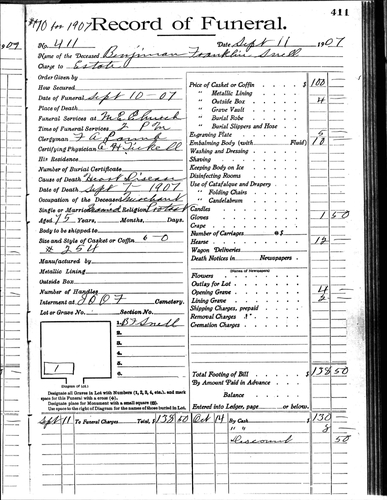 #70 for 1907
Record of Funeral.
411
1907
No. 411
Date Sept 11 1907
Name of the Deceased Benjiman Franklin Snell
Charge to Estate
Order Given by
How Secured
Date of Funeral Sept 10-07
Place of Death
Funeral Services at M.E. Church
Time of Funeral Services 2 PM
Clergyman F A
Certifying Physician
His Residence
Number of Burial Certificate
Cause of Death Heart Disease
Date of Death Sept 7, 1907
Occupation of the Deceased Merchant
Single or Married Religion
Aged 75 Years, Months, Days.
Body to be shipped to
Size and Style of Casket or Coffin 6-0
# 254
Manufactured by
Metallic Lining
Outside Box
Number of Handles
Interment at I O O F Cemetery.
Lot or Grave No. Section No.
1. B F Snell
2.
3.
4.
5.
6.
1
(Diagram of Lot.)
Designate all Graves in Lot with Numbers (1, 2, 3, 4, etc.), and mark
space for this Funeral with a cross (+).
Designate place for Monument with a small square (□).
Use space to the right of Diagram for the names of those buried in Lot.
Price of Casket or Coffin $ 100
" Metallic Lining
" Outside Box 4
" Grave Vault
" Burial Robe
" Burial Slippers and Hose
Engraving Plate
Embalming Body (with Fluid) 10
Washing and Dressing
Shaving
Keeping Body on Ice
Disinfecting Rooms
Use of Catafalque and Drapery
" Folding Chairs
" Candelabrum
Candles
Gloves 1 50
Crape
Number of Carriages @ $
Hearse 12
Wagon Deliveries
Death Notices in Newspapers
(Names of Newspapers)
Flowers
Outlay for Lot
Opening Grave 4
Lining Grave 2
Shipping Charges, prepaid
Removal Charges
Cremation Charges
Total Footing of Bill $ 138 50
By Amount Paid in Advance
Balance
Entered into Ledger, page or below.
Sept 11 To Funeral Charges Total, $ 138 50 Oct 14 By Cash $ 130
" " 8
Discount 50